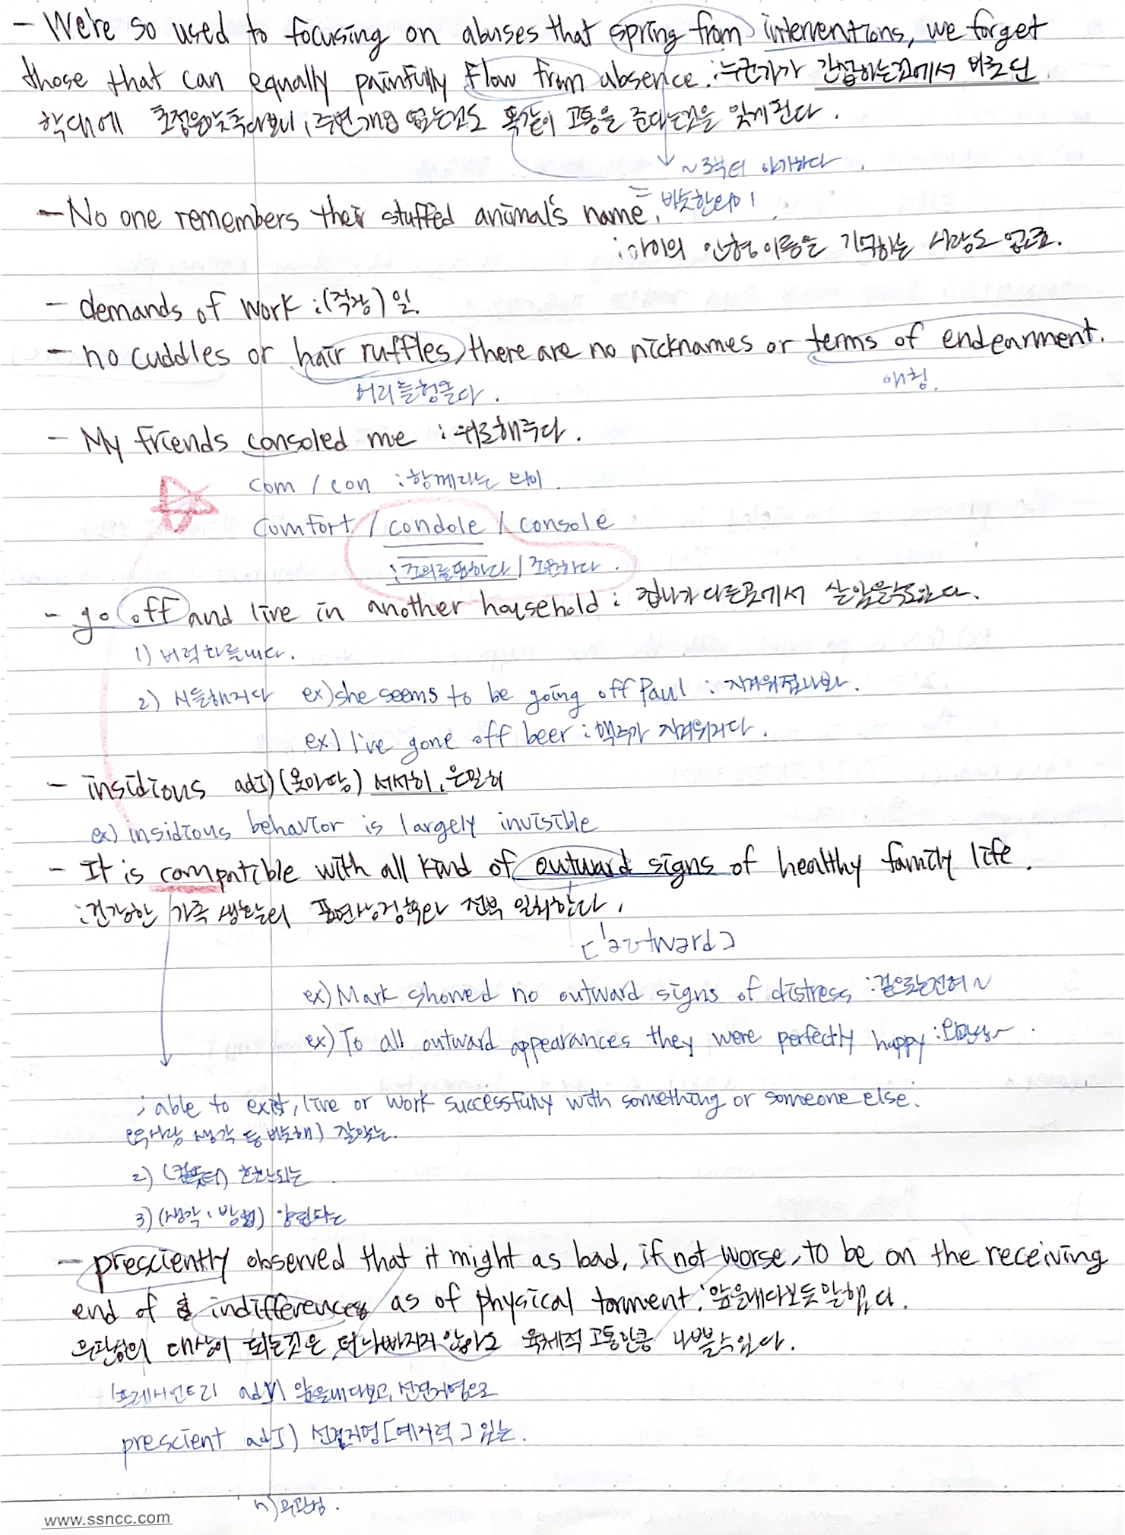 - We're so used to focusing on abuses that spring from interventions, we forget
those that can equally painfully flow from absence. : 누군가가 간접하는 것에서 비롯된
학대에 초점을 똑같이 고통을 준다는 것을 잊게된다.
~로부터 야기하다.
= 비슷한의미
- No one remembers their stuffed animal's name.
: 아이의 인형 이름을 기억하는 사람도 없고요.
- demands of work : (직장) 일.
- no cuddles or hair ruffles, there are no nicknames or terms of endearment.
머리를 헝클다. 애칭.
- My friends consoled me : 위로해주다.
com / con : 함께라는 의미
comfort / condole / console
: 조의를 표하다 / 조문하다.
- go off and live in another household : 집나가 다른곳에서 살 있다.
1) 버럭 화를내다.
2) 시들해지다 ex) she seems to be going off Paul : 지겨워졌나봐.
ex) I've gone off beer : 맥주가 지겨워지다.
- insidious adj) (못마땅) 서서히, 은밀히
ex) insidious behavior is largely invisible
- It is compatible with all kind of outward signs of healthy family life.
: 건강한 가족 생활의 표면상 전부 일치한다.
['aʊtwərd]
ex) Mark showed no outward signs of distress : 겉으로는 전혀~
ex) To all outward appearances they were perfectly happy :
: able to exist, live or work successfully with something or someone else.
생각 등 비슷해) 잘맞는.
2) (컴퓨터) 호환되는
3) (생각·방법) 양립하는
- presciently observed that it might as bad, if not worse, to be on the receiving
end of indifference as of physical torment : 앞을내다보듯 말했다.
무관심의 대상이 되는것은 더 나빠지지 않아도 육체적 고통만큼 나쁠수있다.
앞을내다보고, 선견지명으로
prescient adj) 선견지명[예지력] 있는.
n) 무관심.
www.ssncc.com